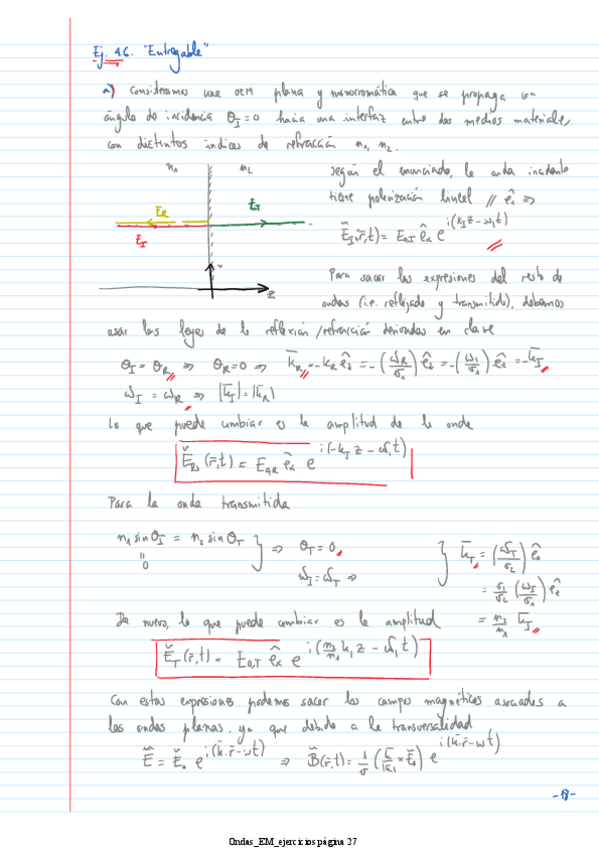 Ej. 4.6. "Entregable"
a) Consideramos una OEM plana y monocromática que se propaga con
ángulo de incidencia θ_I = 0 hacia una interfaz entre dos medios materiales
con distintos índices de refracción n₁, n₂.
n₁ n₂
E_R E_T
E_I
z
Según el enunciado, la onda incidente
tiene polarización lineal // ê_x ⇒
Ě_I(r̄,t) = E_{0,I} ê_x e^{i(k_I z - ω_I t)}
Para sacar las expresiones del resto de
ondas (i.e. reflejada y transmitida), debemos
usar las leyes de la reflexión/refracción derivadas en clase
θ_I = θ_R ⇒ θ_R = 0 ⇒ k̄_R = -k_R ê_z = -(ω_R/v₁) ê_z = -(ω_I/v₁) ê_z = -k̄_I
ω_I = ω_R ⇒ |k̄_I| = |k̄_R|
Lo que puede cambiar es la amplitud de la onda
Ě_R(r̄,t) = E_{0,R} ê_x e^{i(-k_I z - ω_I t)}
Para la onda transmitida
n₁ sin θ_I = n₂ sin θ_T } ⇒ θ_T = 0 } k̄_T = (ω_T/v₂) ê_z
" 0 ω_I = ω_T ⇒ = v₁/v₂ (ω_I/v₁) ê_z
De nuevo, lo que puede cambiar es la amplitud = n₂/n₁ k̄_I
Ě_T(r̄,t) = E_{0,T} ê_x e^{i(n₂/n₁ k_I z - ω_I t)}
Con estas expresiones podemos sacar los campos magnéticos asociados a
las ondas planas, ya que debido a la transversalidad
Ě = Ě₀ e^{i(k̄·r̄-ωt)} ⇒ B̌(r̄,t) = 1/v (k̄/|k̄| × Ě₀) e^{i(k̄·r̄-ωt)}
Ondas_EM_ejercicios página 27